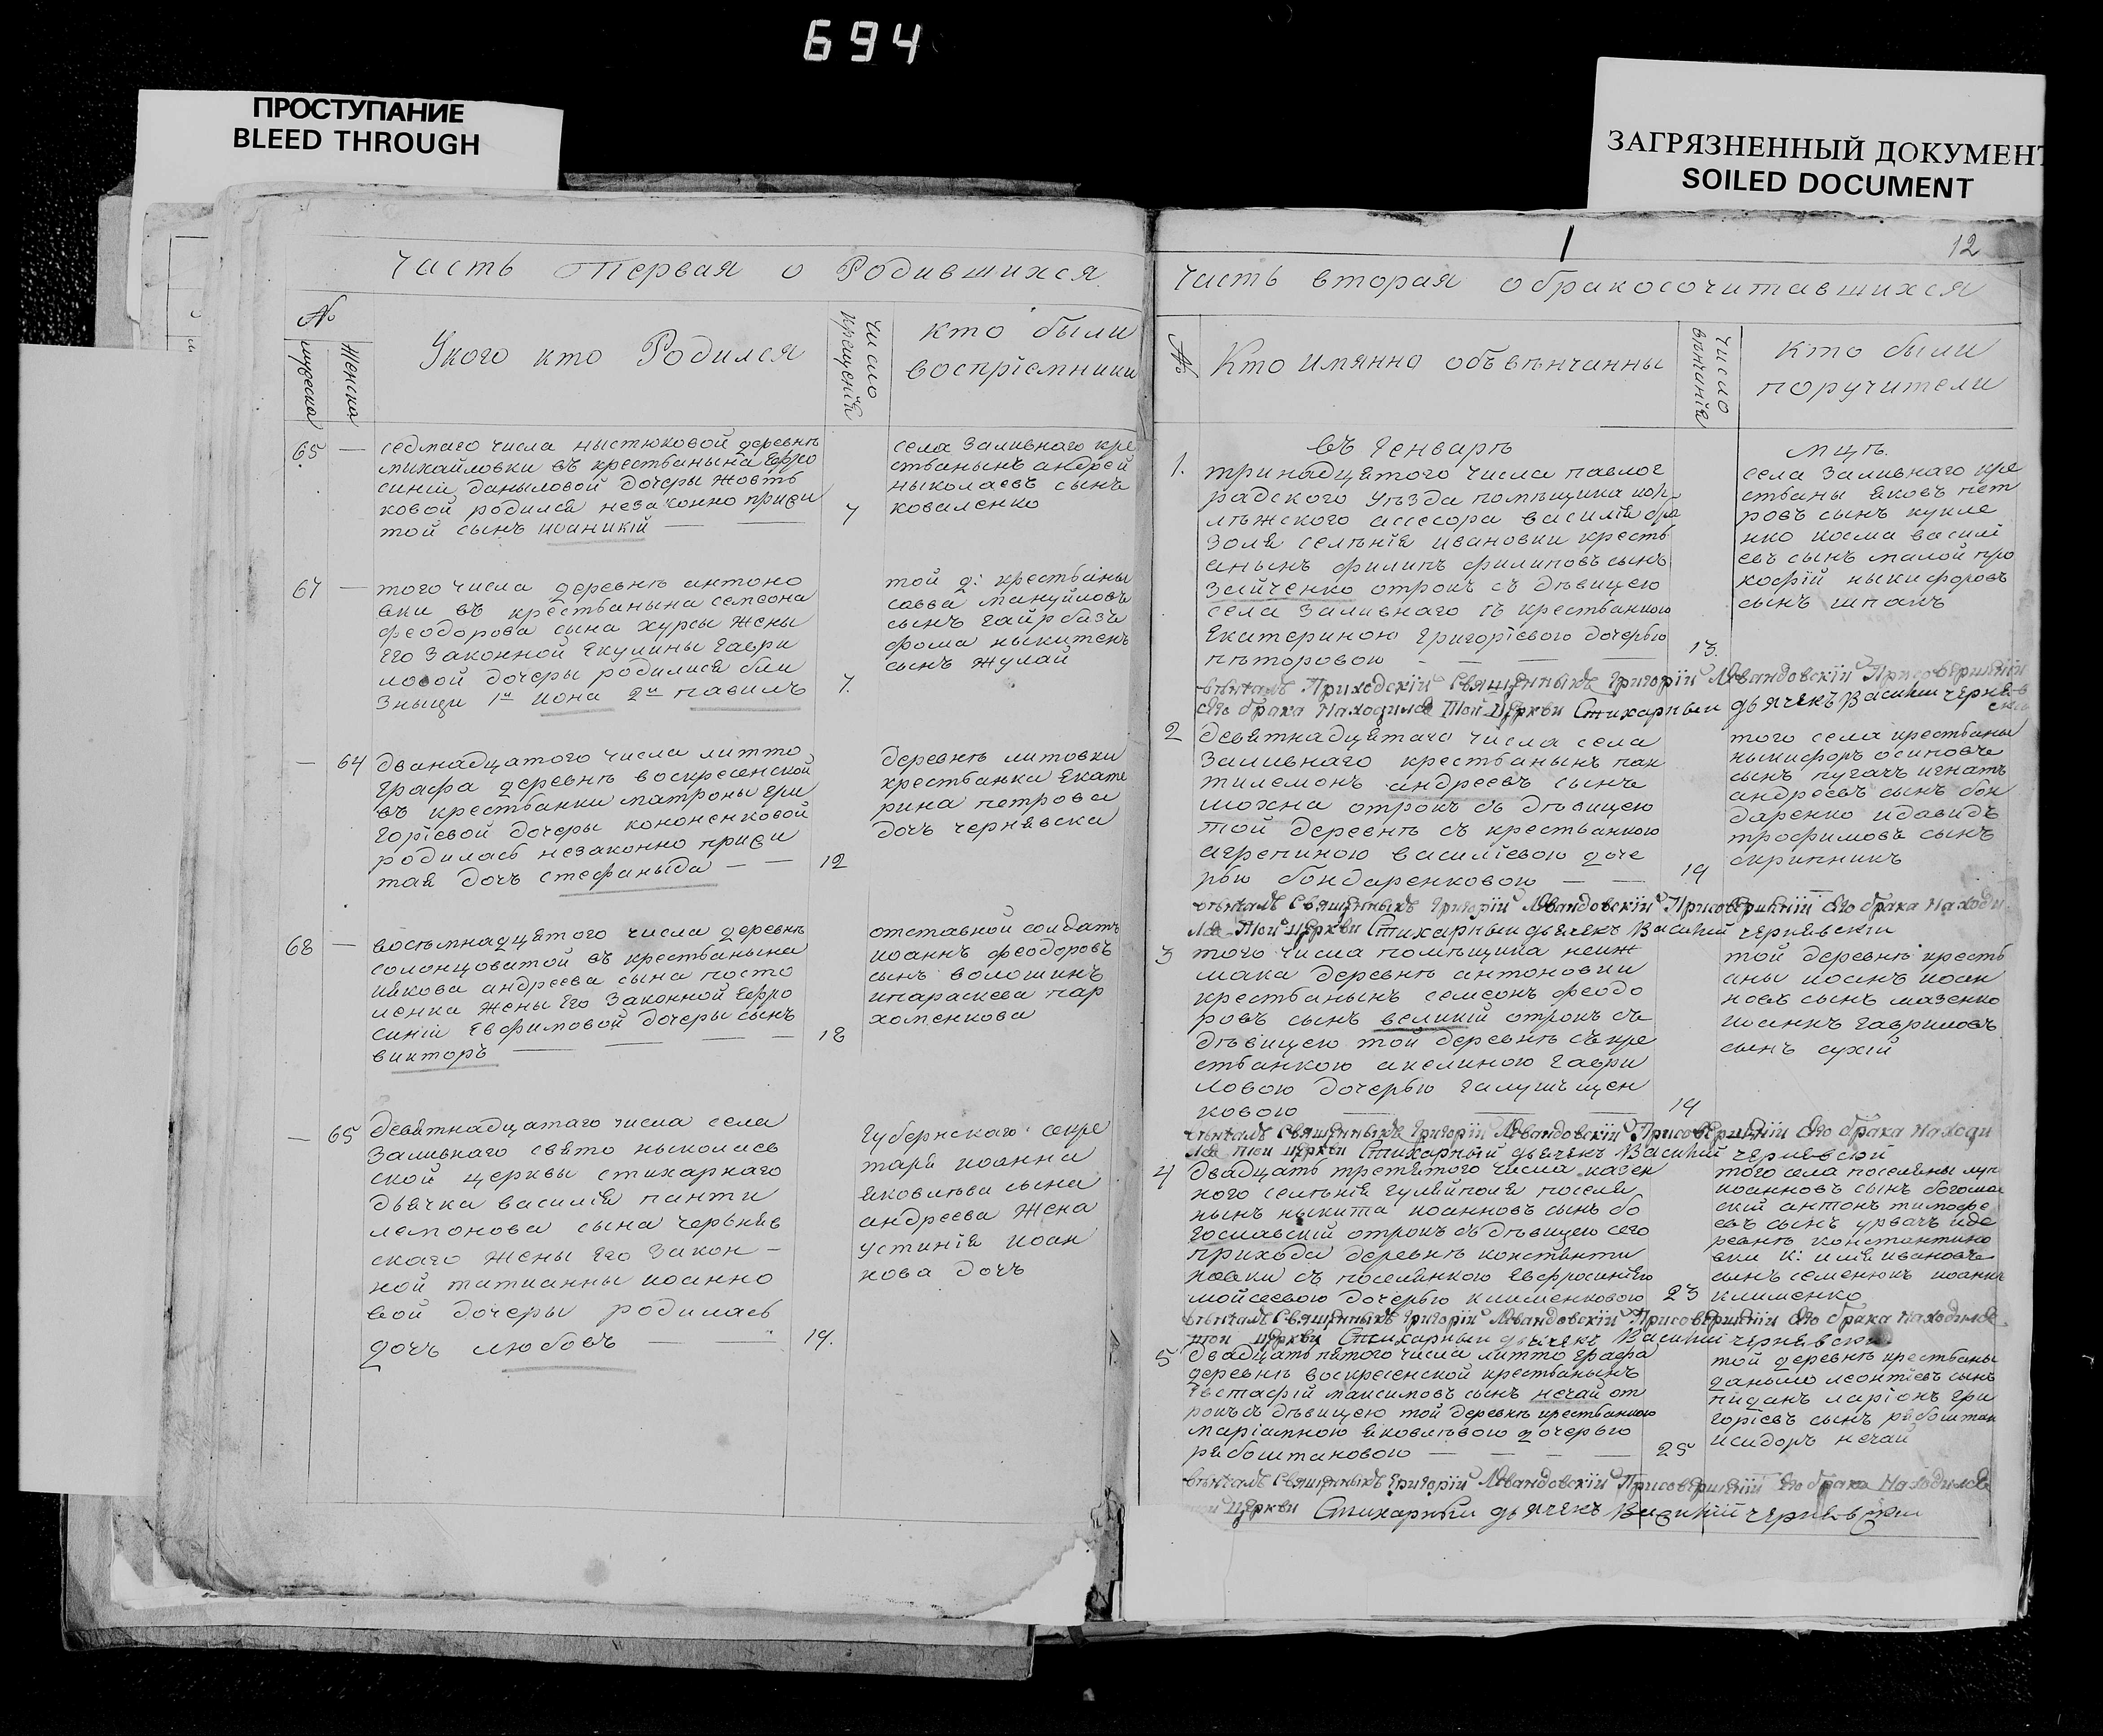 694
ПРОСТУПАНИЕ
BLEED THROUGH
ЗАГРЯЗНЕННЫЙ ДОКУМЕНТ
SOILED DOCUMENT
Часть Первая о Родившихся
№
мужеска
Женска
Укого кто Родился
Число крещенія
кто были
воспріемники
65 — седмаго числа ныстюковой деревнѣ
михайловки въ крестьянына Ефро
синіи даныловой дочеры Жовтѣ
ковой родился незаконно приви
той сынъ иоаникій — — 7
села Заливнаго кре
стьянынъ андрей
ныколаевъ сынъ
коваленко
67 — того числа деревнѣ антоно
вки въ крестьянына семеона
феодорова сына хурсы жены
Его Законной Екулины гаври
ловой дочеры родилися бли
зныци 1й Иона 2й павилъ 7.
той д: крестьяны
савва мануйловъ
сынъ гайрбазъ
фома ныкитенъ
сынъ жулай
— 64 дванадцатого числа литто
Графа деревнѣ воскресенской
въ крестьянки матроны гри
горіевой дочеры кононенковой
родилась незаконно приви
тая дочъ стефаныда — — 12
деревнѣ литовки
крестьянка Екате
рина петрова
дочъ чернявска
68 — восемнадцятого числа деревнѣ
солонцоватой въ крестьянына
иякова андреева сына посто
ленка жены Его Законной Ефро
синіи Евфимовой дочеры сынъ
викторъ — — — — 18
отставной солдатъ
иоаннъ феодоровъ
сынъ волошинъ
ипараскева пар
хоменкова
— 65 девятнадцатаго числа села
Заливнаго свято ныколаев
ской церквы стихарнаго
дьячка василія панти
лемонова сына черняв
скаго жены Его Закон —
ной татианны иоанно
вой дочеры родилась
дочъ любовъ — — 19.
Губернскаго секре
таря иоанна
яковлѣва сына
андреева жена
устинія иоан
нова дочъ
12
Часть вторая обракосочитавшихся
№
Кто имянно объвѣнчанны
Число вѣнчанія
кто были
поручители
въ Генварѣ мцѣ.
1. тринадцятого числа павлог
радского уѣзда помѣщика кол-
лѣжского ассесора василія
золя селѣнія ивановки кресть
янынъ филипъ филиповъ сынъ
Зайченко отрокъ съ дѣвицею
села Заливнаго съ крестьянкою
Екатериною григоріевою дочерью
пѣторовою — — — — 13.
села Заливнаго кре
стьяны яковъ пет
ровъ сынъ кукле
нко косма васили
евъ сынъ малой про
кофій ныкифоровъ
сынъ шпакъ
вѣнчалъ Приходскій Священныкъ Григорій Левандовскій Присовершеніи
сего брака Находился Той Церкви Стихарный дьячекъ Василій черняв
скій
2 девятнадцятаго числа села
Заливнаго крестьянынъ пан
тилемонъ андреевъ сынъ
можна отрокъ съ дѣвицею
той деревнѣ съ крестьянкою
агрепиною василіевою доче
рью бондаренковою — — 19
того села крестьяны
ныкифоръ осиповъ
сынъ пугачъ игнатъ
андреевъ сынъ бон
даренко идавидъ
трофимовъ сынъ
скрипникъ
вѣнчалъ Священныкъ Григорій Левандовскій Присовершеніи сего брака Находи
лся Той церкви Стихарный дьячекъ Василій чернявскій
3 того числа помѣщика неиж
мака деревнѣ антоновки
крестьянынъ семеонъ феодо
ровъ сынъ великій отрокъ съ
дѣвицею той деревнѣ съ кре
стьянкою акелиною гаври
ловою дочерью галушъщен
ковою — — — 19
той деревнѣ кресть
яны иоанъ иоан
новъ сынъ мазенко
иоаннъ гавриловъ
сынъ сухій
вѣнчалъ Священныкъ Григорій Левандовскій Присовершеніи сего брака Находи
лся той церкви Стихарный дьячекъ Василій чернявскій
4 двадцать третятого числа казен
ного селѣнія гуляйполя поселя
нынъ ныкита иоанновъ сынъ бо
гославскій отрокъ съ дѣвицею сего
прихода деревнѣ константи
новки съ поселянкою Евфросиніею
мойсеевою дочерью клименковою 23
того села поселяны луп
иоанновъ сынъ богосла
скій антонъ тимофе
евъ сынъ урвачъ иде
ревнѣ константино
вки к: илія ивановъ
сынъ семенюкъ иоаннъ
клименко
вѣнчалъ Священныкъ Григорій Левандовскій Присовершеніи сего брака Находился
той церкви Стихарный дьячекъ Василій чернявскій
5 двадцать пятого числа литто Графа
деревнѣ воскресенской крестьянынъ
Евстафій максимовъ сынъ нечай от
рокъ съ дѣвицею той деревнѣ крестьянкою
маріамною яковлѣвою дочерью
рябоштановою — — — — 25
той деревнѣ крестьяны
даныло леонтіевъ сынъ
пиданъ ларіонъ гри
горіевъ сынъ рябоштан
исидоръ нечай
вѣнчалъ Священныкъ Григорій Левандовскій Присовершеніи сего брака Находился
той Церкви Стихарный дьячекъ Василій чернявскій